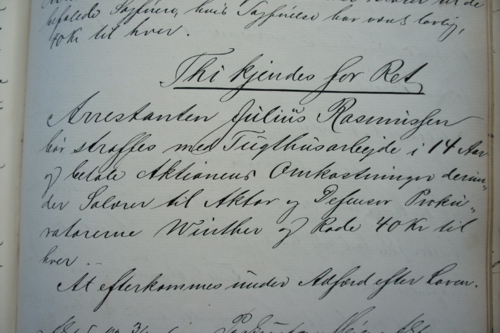 befalede Sagførere, hvis Sagførelse har været lovlig,
40 Kr til hver.
Thi kjendes for Ret
Arrestanten Julius Rasmussen
bør straffes med Tugthusarbejde i 14 Aar
og betale Aktionens Omkostninger derun-
der Salærer til Aktor og Defensor Proku-
ratorerne Winther og Rode 40 Kr til
hver.
At efterkommes under Adfærd efter Loven.